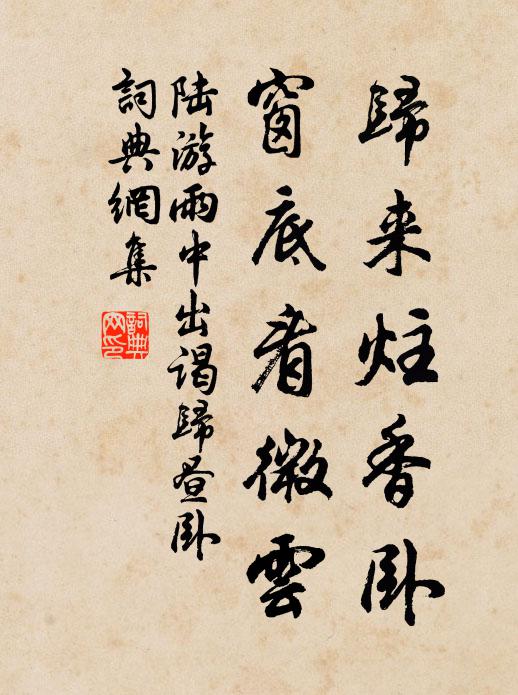 歸来炷香卧
窗底看微雲
陆游雨中出谒歸昼卧
詞典網集
詞典
网印